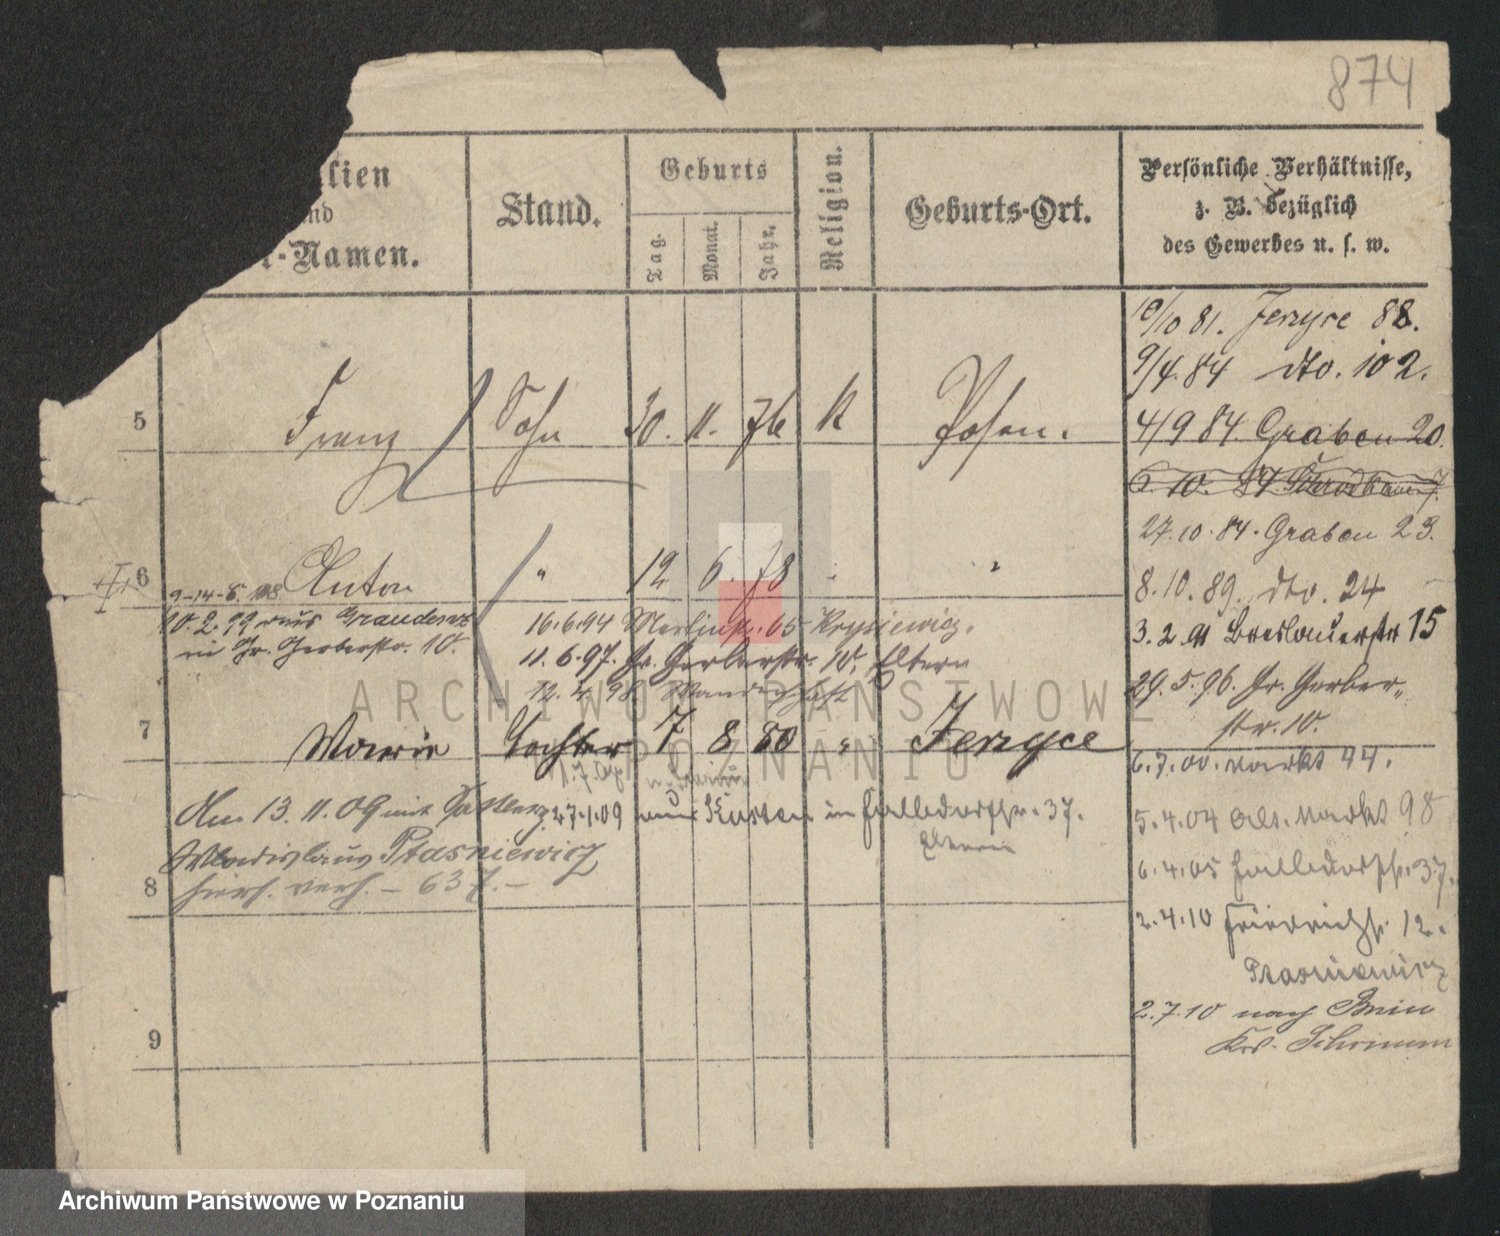 874
lien
nd
-Namen.
Stand.
Geburts
Tag.
Monat.
Jahr.
Religion.
Geburts-Ort.
Persönliche Verhältnisse,
z. B. bezüglich
des Gewerbes u. s. w.
10/10 81. Jerzyce 88.
9/4.84 dto. 102.
5 Franz Sohn 30. 11. 76 K Posen.
4/9 84. Graben 20.
6. 10. 84
27.10.84. Graben 23.
6 Anton " 12 6. 78 " "
8.10.89. dto. 24
9-14-8.
10.2.99 aus Graudenz
in Gr. Gerberstr. 10.
16.6.94 65 Krysiewicz.
11.6.97. Gr. Gerberstr. 10. Eltern
12.4.98. Wanderschaft
3.2.91 Breslauerstr 15
29.5.96. Gr. Gerber-
str. 10.
7 Marie Tochter 7 8 80 " Jerzyce
6.7.00. Markt 44.
Am 13.11.09 mit
27.1.09 aus in Halldorfstr. 37.
Eltern
Wladislaus Ptasniewicz
hiers. verh. - 637.-
5.4.04 Als. Markt 98
6.4.05 Halldorfstr. 37.
8
2.4.10 Friedrichstr. 12.
Ptasniewicz
2.7.10 nach Bnin
Krs. Schrimm
9
ARCHIWUM PAŃSTWOWE
W POZNANIU
Archiwum Państwowe w Poznaniu